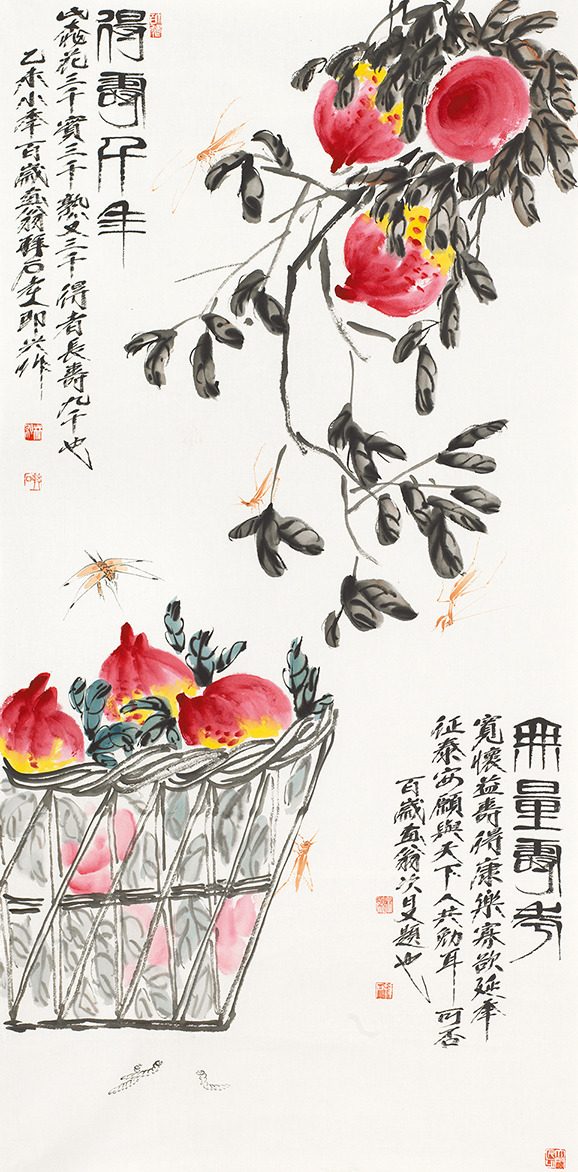 得壽千年
此桃花三千實三千熟又三千得者長壽九千也
乙未小年百歲画翁醉石主即兴作
無量壽考
寬懷益壽得康樂寡欲延年
征泰安願與天下人共勉耳可否
百歲画翁次又題也